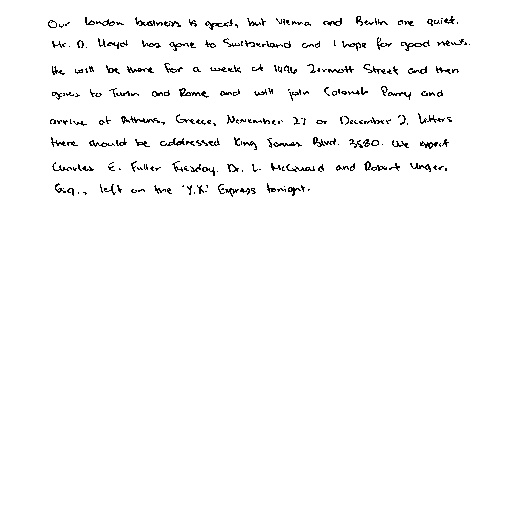 Our London business is good, but Vienna and Berlin are quiet.
Mr. D. Lloyd has gone to Switzerland and I hope for good news.
He will be there for a week at 1496 Zermott Street and then
goes to Turin and Rome and will join Colonel Parry and
arrive at Athens, Greece, November 27 or December 2. Letters
there should be addressed King James Blvd. 3580. We expect
Charles E. Fuller Tuesday. Dr. L. McQuaid and Robert Unger,
Esq., left on the 'Y.X.' Express tonight.